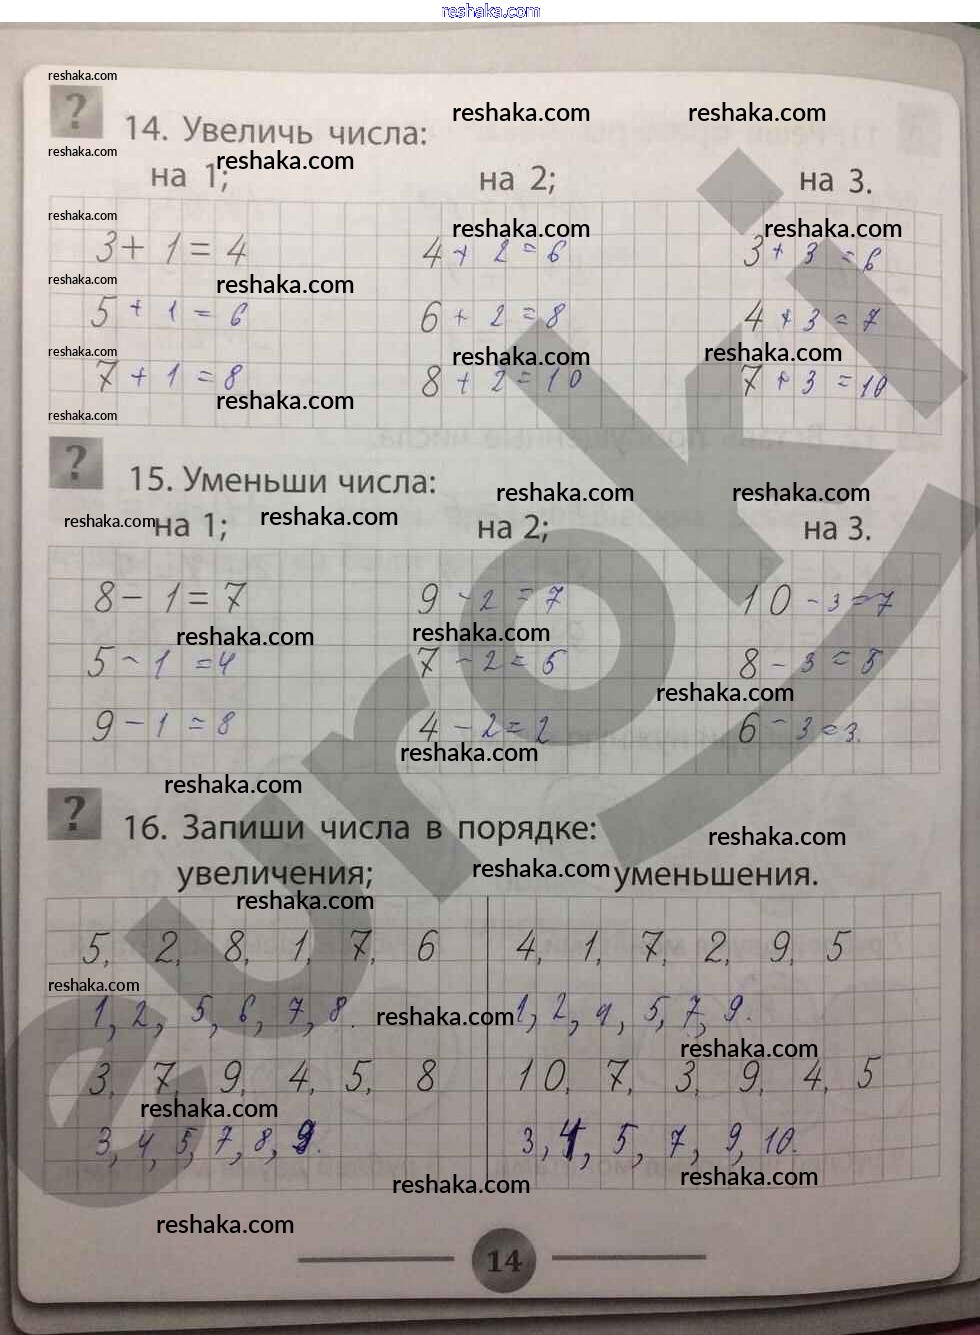 reshaka.com
reshaka.com
? 14. Увеличь числа: reshaka.com reshaka.com
reshaka.com reshaka.com
на 1; на 2; на 3.
reshaka.com reshaka.com reshaka.com
3 + 1 = 4 4 + 2 = 6 3 + 3 = 6
reshaka.com reshaka.com
5 + 1 = 6 6 + 2 = 8 4 + 3 = 7
reshaka.com reshaka.com reshaka.com
7 + 1 = 8 8 + 2 = 10 7 + 3 = 10
reshaka.com reshaka.com
? 15. Уменьши числа: reshaka.com reshaka.com
reshaka.com reshaka.com
на 1; на 2; на 3.
8 - 1 = 7 9 - 2 = 7 10 - 3 = 7
reshaka.com reshaka.com
5 - 1 = 4 7 - 2 = 5 8 - 3 = 5
reshaka.com
9 - 1 = 8 4 - 2 = 2 6 - 3 = 3.
reshaka.com
reshaka.com
? 16. Запиши числа в порядке: reshaka.com
увеличения; reshaka.com уменьшения.
reshaka.com
5, 2, 8, 1, 7, 6 4, 1, 7, 2, 9, 5
reshaka.com
1, 2, 5, 6, 7, 8. reshaka.com 1, 2, 4, 5, 7, 9.
reshaka.com
3, 7, 9, 4, 5, 8 10, 7, 3, 9, 4, 5
reshaka.com
3, 4, 5, 7, 8, 9. 3, 4, 5, 7, 9, 10.
reshaka.com reshaka.com
reshaka.com
14
euroki